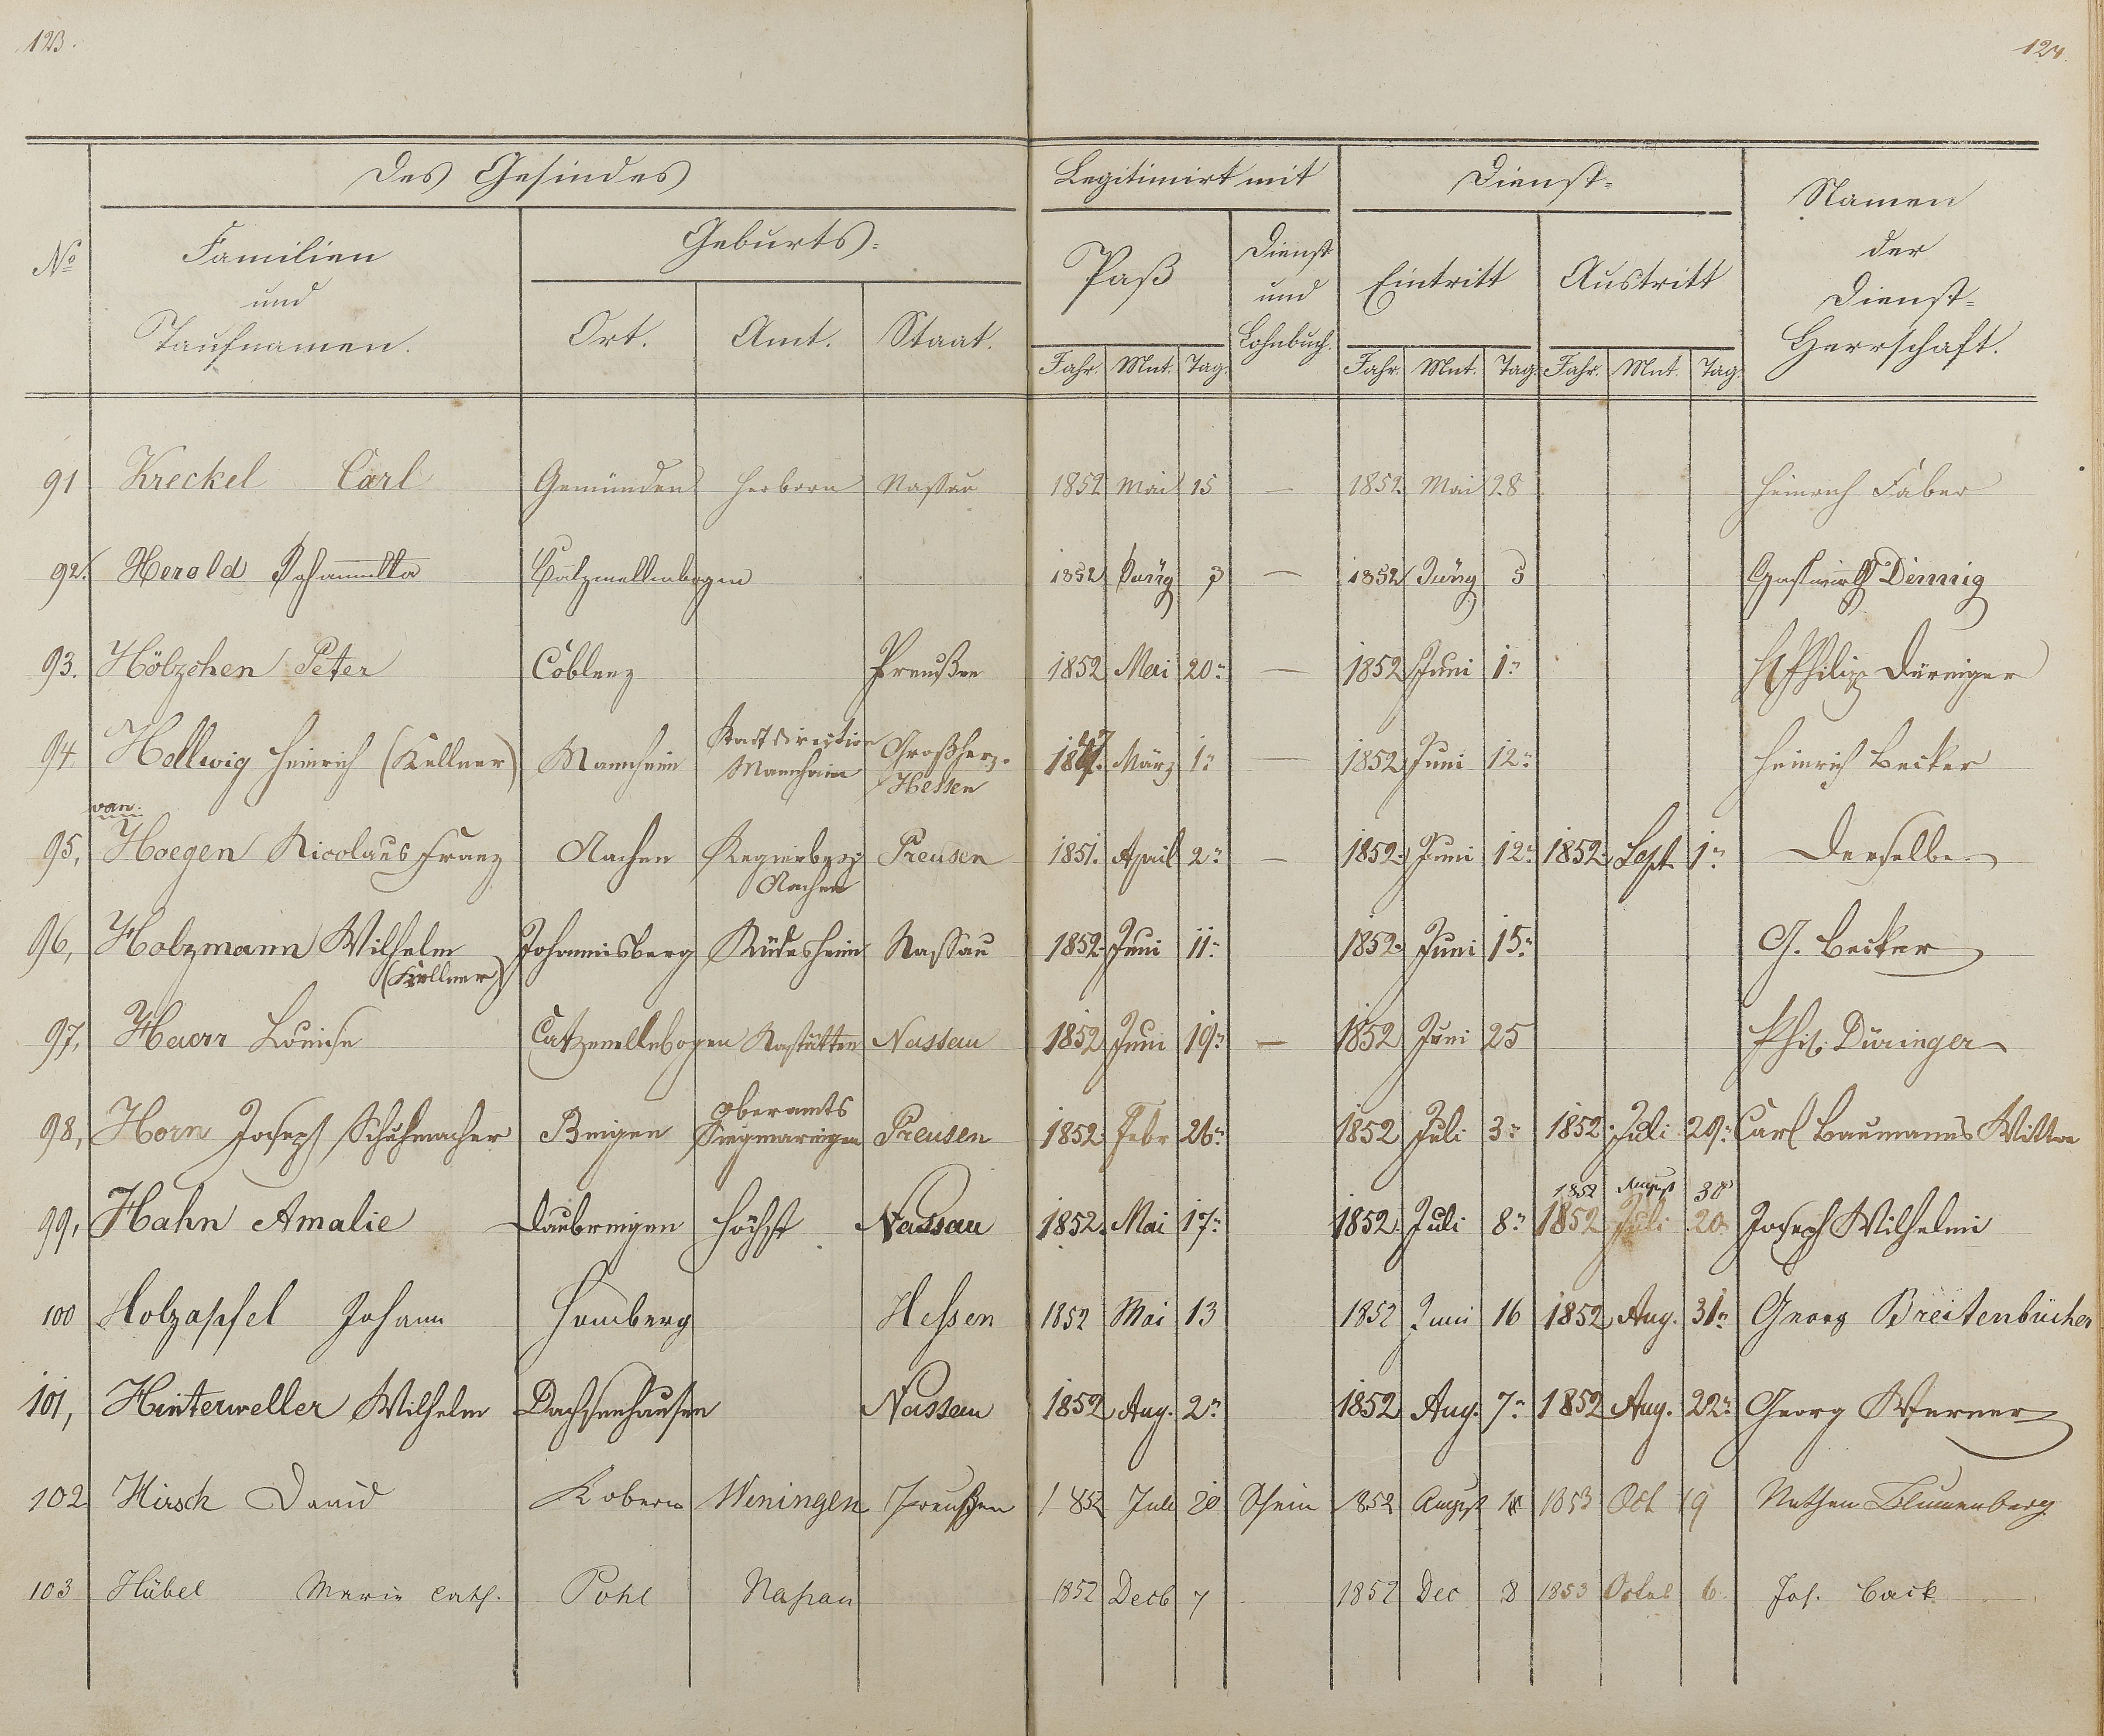 123.
124.
Des Gesindes
Legitimirt mit
Dienst-
Namen der Dienst-Herrschaft.
No
Familien und Taufnamen.
Geburts-
Paß
Dienst und Lohnbuch.
Eintritt
Austritt
Ort. Amt. Staat.
Jahr. Mnt. Tag. Jahr. Mnt. Tag. Jahr. Mnt. Tag.
91 Kreckel Carl Gemünden Herborn Nassau 1852 Mai 15 — 1852. Mai 28 Heinrich Faber
92. Herold Johannetta Catzenellenbogen 1852 3 — 1852 5 Gastwirth
93. Hölzchen Peter Coblenz Preußen 1852 Mai 20. — 1852 Juni 1. Philipp Düringer
94. Hellwig Heinrich (Kellner) Mannheim Stadtdirection Mannheim Großherz. Hessen März 1. — 1852 Juni 12. Heinrich Becker
95, van Hoegen Nicolaus Franz Aachen Regierbezirk Aachen Preusen 1851. April 2. — 1852. Juni 12. 1852. Sept 1. Derselbe
96, Holzmann Wilhelm (Kellner) Johannisberg Rüdesheim Nassau 1852. Juni 11. 1852. Juni 15. G. Becker
97, Louise Catzenellebogen Nastätten Nassau 1852 Juni 19. — 1852 Juni 25 Phil. Düringer
98, Horn Joseph Schuhmacher Bingen Oberamts Siegmaringen Preusen 1852 Febr 26. 1852 Juli 3. 1852. Juli 29. Carl Baumanns Wittwe
1852 August 30
99, Hahn Amalie Höchst Nassau 1852. Mai 17. 1852. Juli 8. 1852 Juli 20. Joseph Wilhelmi
100 Holzapfel Johann Homberg Hessen 1852 Mai 13 1852 Juni 16 1852 Aug. 31. Georg Breitenbücher
101, Hinterweller Wilhelm Dachsenhausen Nassau 1852 Aug. 2. 1852 Aug. 7. 1852 Aug. 22. Georg Werner
102 Hirsch David Kobern Weningen Preußen 1852 Juli 20 Schein 1852 August 1853 Oct 19 Nathan Blumenberg
103 Hübel Marie Cath. Pohl Nassau 1852 Decb 7 1852 Dec 8 1853 Octob 6. Jos. Back